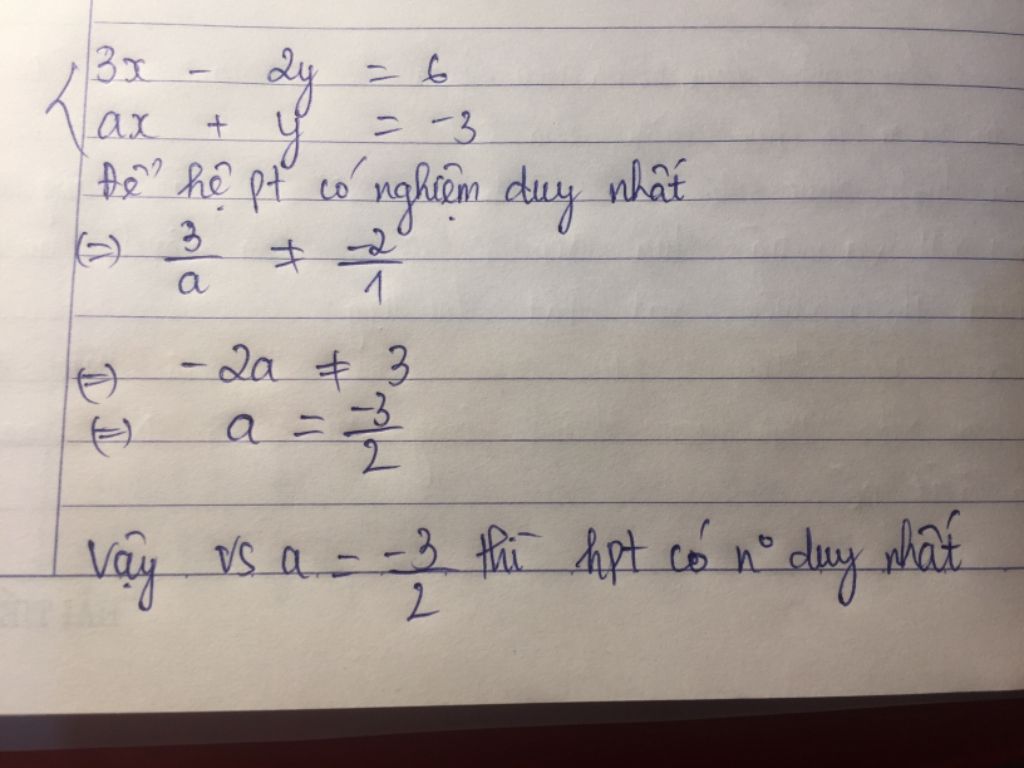 3x - 2y = 6
ax + y = -3
Để hệ pt có nghiệm duy nhất
(=) 3/a ≠ -2/1
(=) -2a ≠ 3
(=) a = -3/2
Vậy vs a = -3/2 thì hpt có n° duy nhất